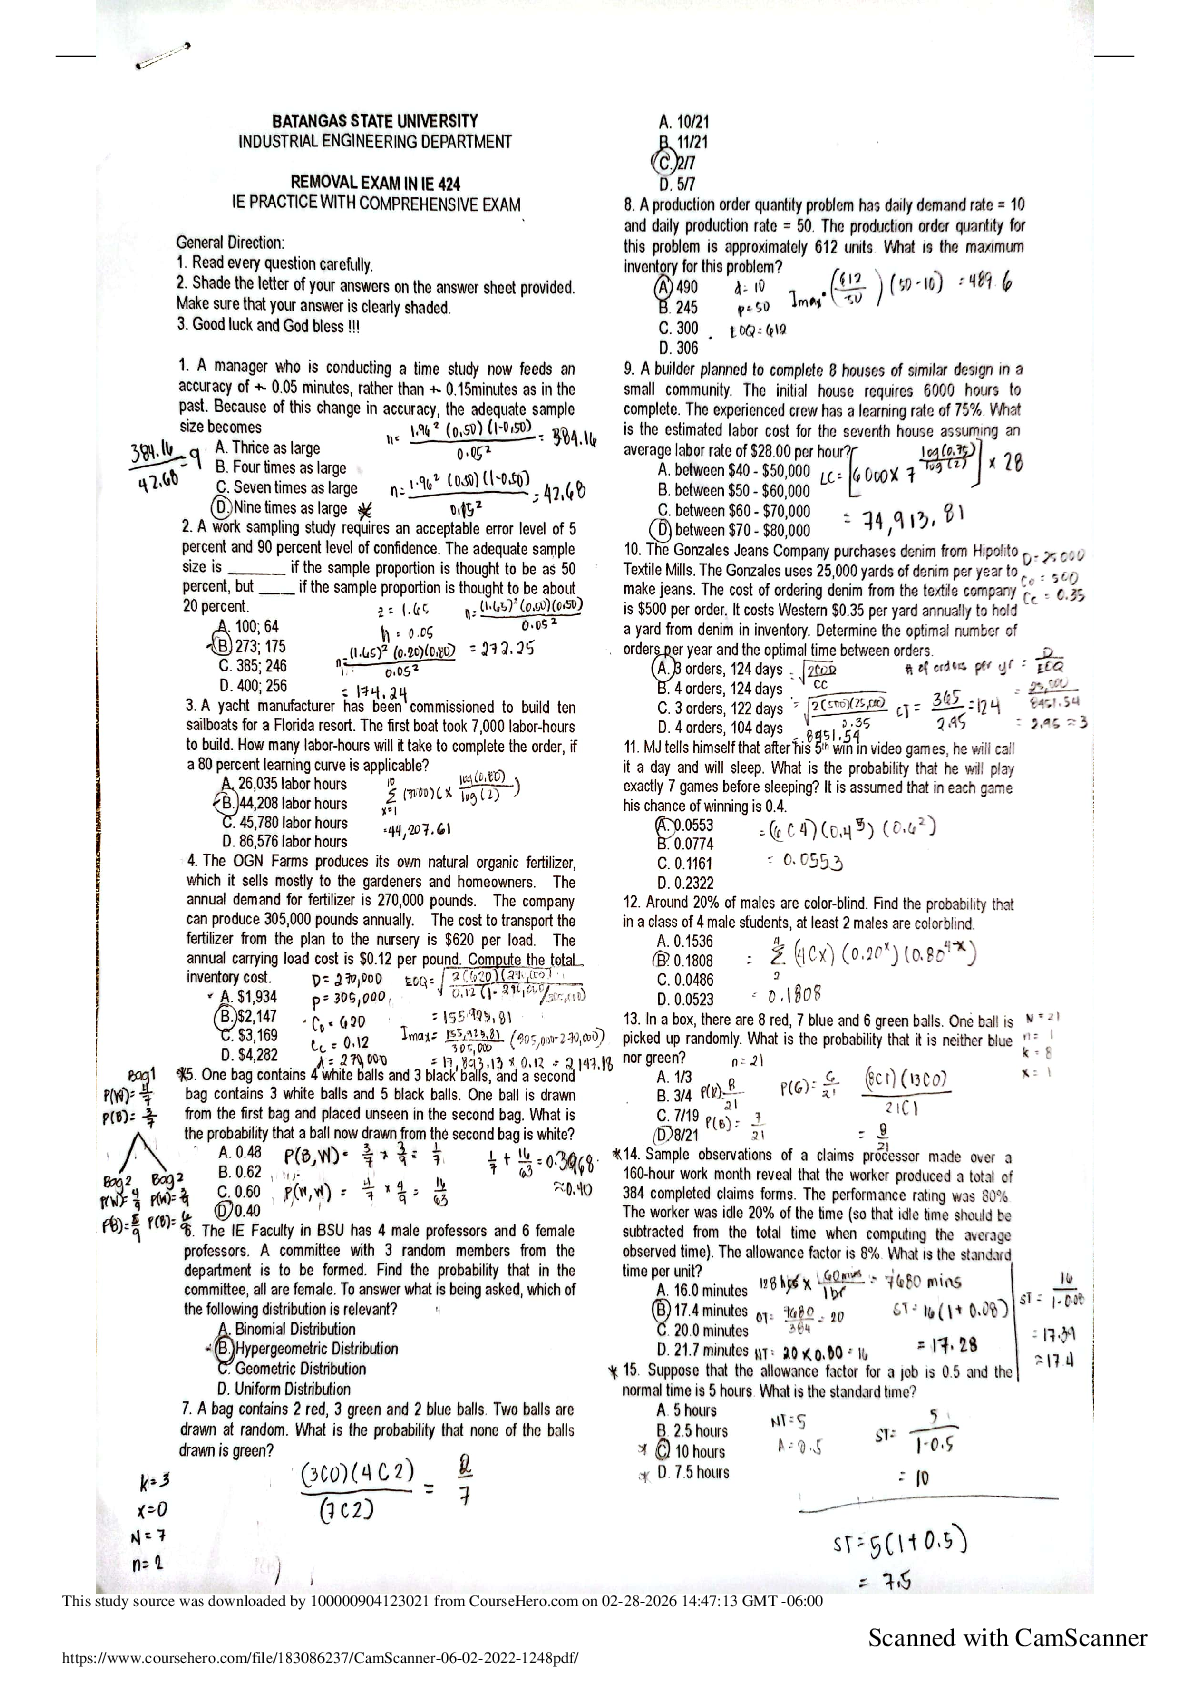 BATANGAS STATE UNIVERSITY
INDUSTRIAL ENGINEERING DEPARTMENT
REMOVAL EXAM IN IE 424
IE PRACTICE WITH COMPREHENSIVE EXAM
General Direction:
1. Read every question carefully.
2. Shade the letter of your answers on the answer sheet provided.
Make sure that your answer is clearly shaded.
3. Good luck and God bless !!!
1. A manager who is conducting a time study now feeds an
accuracy of +- 0.05 minutes, rather than +- 0.15minutes as in the
past. Because of this change in accuracy, the adequate sample
size becomes
n= 1.96² (0.50)(1-0.50) / 0.05² = 384.16
384.16 / 42.68 = 9
A. Thrice as large
B. Four times as large
C. Seven times as large
n= 1.96² (0.50)(1-0.50) / 0.15² = 42.68
D. Nine times as large
2. A work sampling study requires an acceptable error level of 5
percent and 90 percent level of confidence. The adequate sample
size is _______ if the sample proportion is thought to be as 50
percent, but ____ if the sample proportion is thought to be about
20 percent.
z = 1.65
n= (1.65)² (0.50)(0.50) / 0.05²
h = 0.05
= 272.25
A. 100; 64
B. 273; 175
n= (1.65)² (0.20)(0.80) / 0.05²
C. 385; 246
D. 400; 256
= 174.24
3. A yacht manufacturer has been commissioned to build ten
sailboats for a Florida resort. The first boat took 7,000 labor-hours
to build. How many labor-hours will it take to complete the order, if
a 80 percent learning curve is applicable?
A. 26,035 labor hours
B. 44,208 labor hours
10 Σ x=1 (7000)(x log(0.80) / log(2) )
C. 45,780 labor hours
=44,207.61
D. 86,576 labor hours
4. The OGN Farms produces its own natural organic fertilizer,
which it sells mostly to the gardeners and homeowners. The
annual demand for fertilizer is 270,000 pounds. The company
can produce 305,000 pounds annually. The cost to transport the
fertilizer from the plan to the nursery is $620 per load. The
annual carrying load cost is $0.12 per pound. Compute the total
inventory cost.
D= 270,000
p= 305,000
A. $1,934
B. $2,147
Co = 620
= 155 923.81
C. $3,169
Cc = 0.12
Imax= 155,923.81 / 305,000 (305,000-270,000)
D. $4,282
= 17,893.13 × 0.12 = 2,147.18
5. One bag contains 4 white balls and 3 black balls, and a second
bag contains 3 white balls and 5 black balls. One ball is drawn
from the first bag and placed unseen in the second bag. What is
the probability that a ball now drawn from the second bag is white?
Bag 1
P(W)= 4/7
P(B)= 3/7
Bag 2 Bag 2
A. 0.48
P(B,W)= 3/7 × 3/9 = 1/7
1/7 + 16/63 = 0.3968
≈0.40
B. 0.62
C. 0.60
P(W,W) = 4/7 × 4/9 = 16/63
D. 0.40
6. The IE Faculty in BSU has 4 male professors and 6 female
professors. A committee with 3 random members from the
department is to be formed. Find the probability that in the
committee, all are female. To answer what is being asked, which of
the following distribution is relevant?
A. Binomial Distribution
B. Hypergeometric Distribution
C. Geometric Distribution
D. Uniform Distribution
7. A bag contains 2 red, 3 green and 2 blue balls. Two balls are
drawn at random. What is the probability that none of the balls
drawn is green?
k=3
x=0
N=7
n=2
(3C0)(4C2) / (7C2) = 2/7
A. 10/21
B. 11/21
C. 2/7
D. 5/7
8. A production order quantity problem has daily demand rate = 10
and daily production rate = 50. The production order quantity for
this problem is approximately 612 units. What is the maximum
inventory for this problem?
A. 490
d= 10
Imax= (612 / 50) (50-10) = 489.6
B. 245
p= 50
C. 300
EOQ= 612
D. 306
9. A builder planned to complete 8 houses of similar design in a
small community. The initial house requires 6000 hours to
complete. The experienced crew has a learning rate of 75%. What
is the estimated labor cost for the seventh house assuming an
average labor rate of $28.00 per hour?
LC= [6000 × 7 log(0.75) / log(2)] × 28
A. between $40 - $50,000
B. between $50 - $60,000
C. between $60 - $70,000
= 74,913.81
D. between $70 - $80,000
10. The Gonzales Jeans Company purchases denim from Hipolito
Textile Mills. The Gonzales uses 25,000 yards of denim per year to
make jeans. The cost of ordering denim from the textile company
is $500 per order. It costs Western $0.35 per yard annually to hold
a yard from denim in inventory. Determine the optimal number of
orders per year and the optimal time between orders.
D= 25 000
Co = 500
Cc = 0.35
A. 3 orders, 124 days
# of orders per yr = D / EOQ
B. 4 orders, 124 days
C. 3 orders, 122 days
= √2(500)(25,000) / 0.35
CT = 365 / 2.95 =124
= 25,000 / 8451.54
D. 4 orders, 104 days
= 8451.54
= 2.95 ≈3
11. MJ tells himself that after his 5th win in video games, he will call
it a day and will sleep. What is the probability that he will play
exactly 7 games before sleeping? It is assumed that in each game
his chance of winning is 0.4.
A. 0.0553
=(6C4)(0.4⁵)(0.6²)
B. 0.0774
C. 0.1161
= 0.0553
D. 0.2322
12. Around 20% of males are color-blind. Find the probability that
in a class of 4 male students, at least 2 males are colorblind.
A. 0.1536
B. 0.1808
= 4 Σ 2 (4Cx)(0.20ˣ)(0.80⁴⁻ˣ)
C. 0.0486
D. 0.0523
= 0.1808
13. In a box, there are 8 red, 7 blue and 6 green balls. One ball is
picked up randomly. What is the probability that it is neither blue
nor green?
N = 21
n= 1
k = 8
x= 1
n=21
A. 1/3
B. 3/4
P(R)= 8/21
P(G)= 6/21
(8C1)(13C0) / 21C1
C. 7/19
P(B)= 7/21
D. 8/21
= 8/21
14. Sample observations of a claims processor made over a
160-hour work month reveal that the worker produced a total of
384 completed claims forms. The performance rating was 80%.
The worker was idle 20% of the time (so that idle time should be
subtracted from the total time when computing the average
observed time). The allowance factor is 8%. What is the standard
time per unit?
A. 16.0 minutes
128 hrs × 60 mins / 1hr = 7680 mins
B. 17.4 minutes
OT= 7680 / 384 = 20
ST= 16(1+0.08)
C. 20.0 minutes
= 17.28
D. 21.7 minutes
NT= 20 × 0.80 = 16
ST = 16 / 1-0.08
=17.39
≈17.4
15. Suppose that the allowance factor for a job is 0.5 and the
normal time is 5 hours. What is the standard time?
A. 5 hours
NT=5
B. 2.5 hours
A=0.5
ST= 5 / 1-0.5
C. 10 hours
D. 7.5 hours
= 10
ST=5(1+0.5)
= 7.5
This study source was downloaded by 100000904123021 from CourseHero.com on 02-28-2026 14:47:13 GMT -06:00
Scanned with CamScanner
https://www.coursehero.com/file/183086237/CamScanner-06-02-2022-1248pdf/